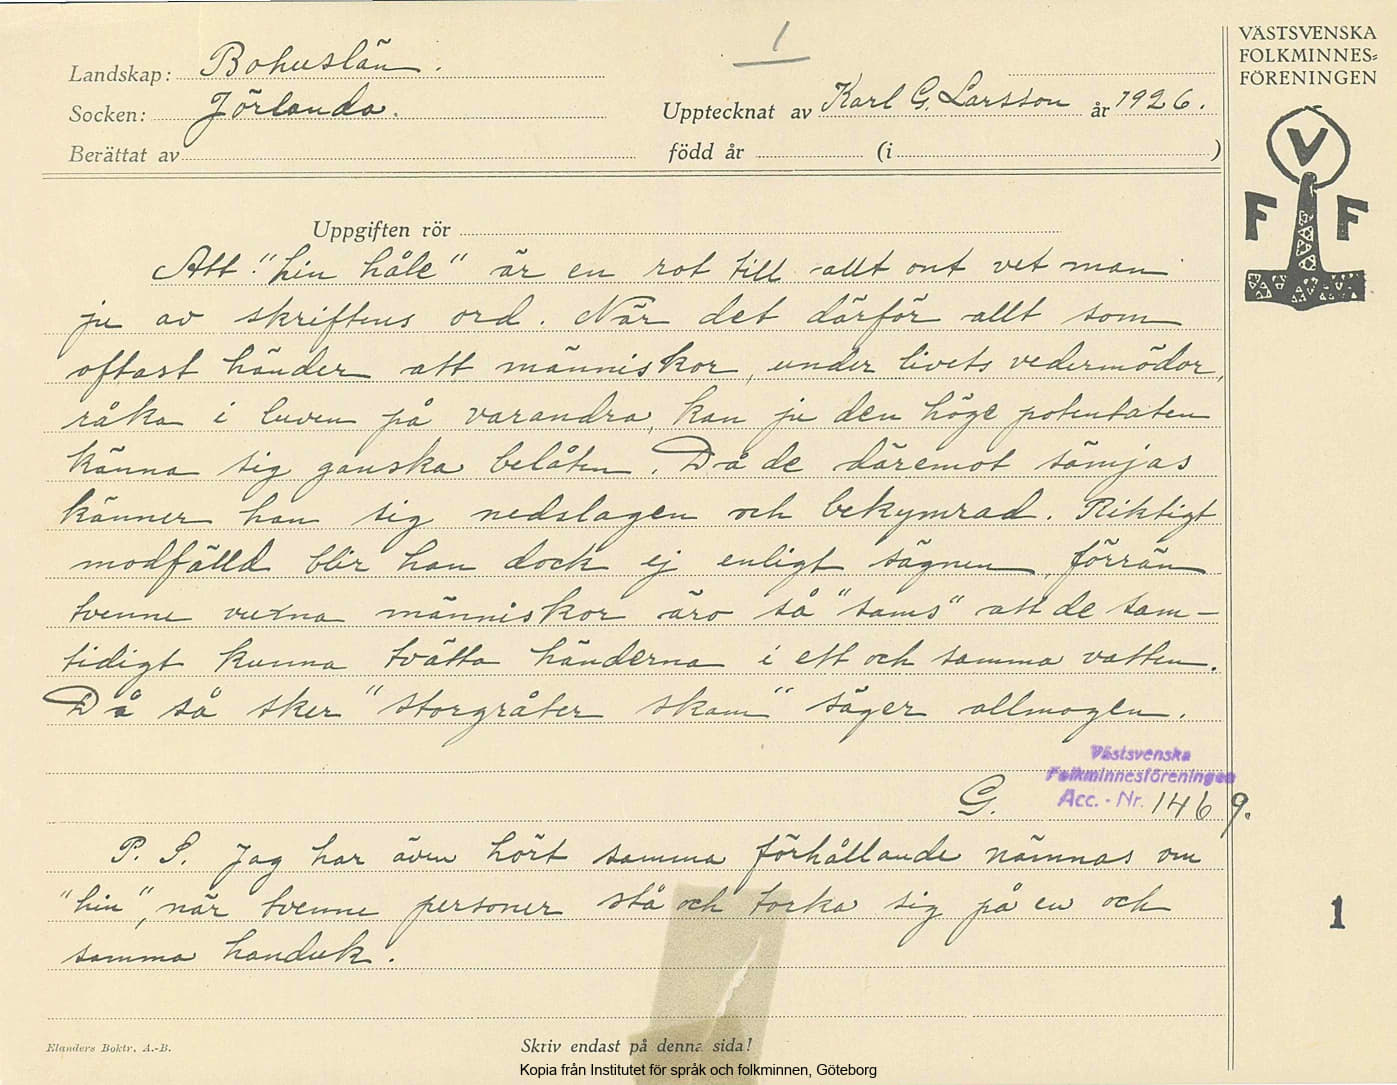 1
VÄSTSVENSKA
FOLKMINNES=
FÖRENINGEN
Landskap: Bohuslän.
Socken: Jörlanda.
Upptecknat av Karl G. Larsson år 1926.
Berättat av
född år (i )
V
F F
Uppgiften rör
Att "hin håle" är en rot till allt ont vet man
ju av skriftens ord. När det därför allt som
oftast händer att människor, under livets vedermödor,
råka i luven på varandra, kan ju den höge potentaten
känna sig ganska belåten. Då de däremot sämjas
känner han sig nedslagen och bekymrad. Riktigt
modfälld blir han dock ej enligt sägnen, förrän
tvenne vuxna människor äro så "sams" att de sam-
tidigt kunna tvätta händerna i ett och samma vatten.
Då så sker "storgråter skam" säger allmogen.
Västsvenska
Folkminnesföreningen
G. Acc. - Nr. 1469.
P. S. Jag har även hört samma förhållande nämnas om
"hin", när tvenne personer stå och torka sig på en och
samma handuk.
1
Elanders Boktr. A.-B.
Skriv endast på denna sida!
Kopia från Institutet för språk och folkminnen, Göteborg